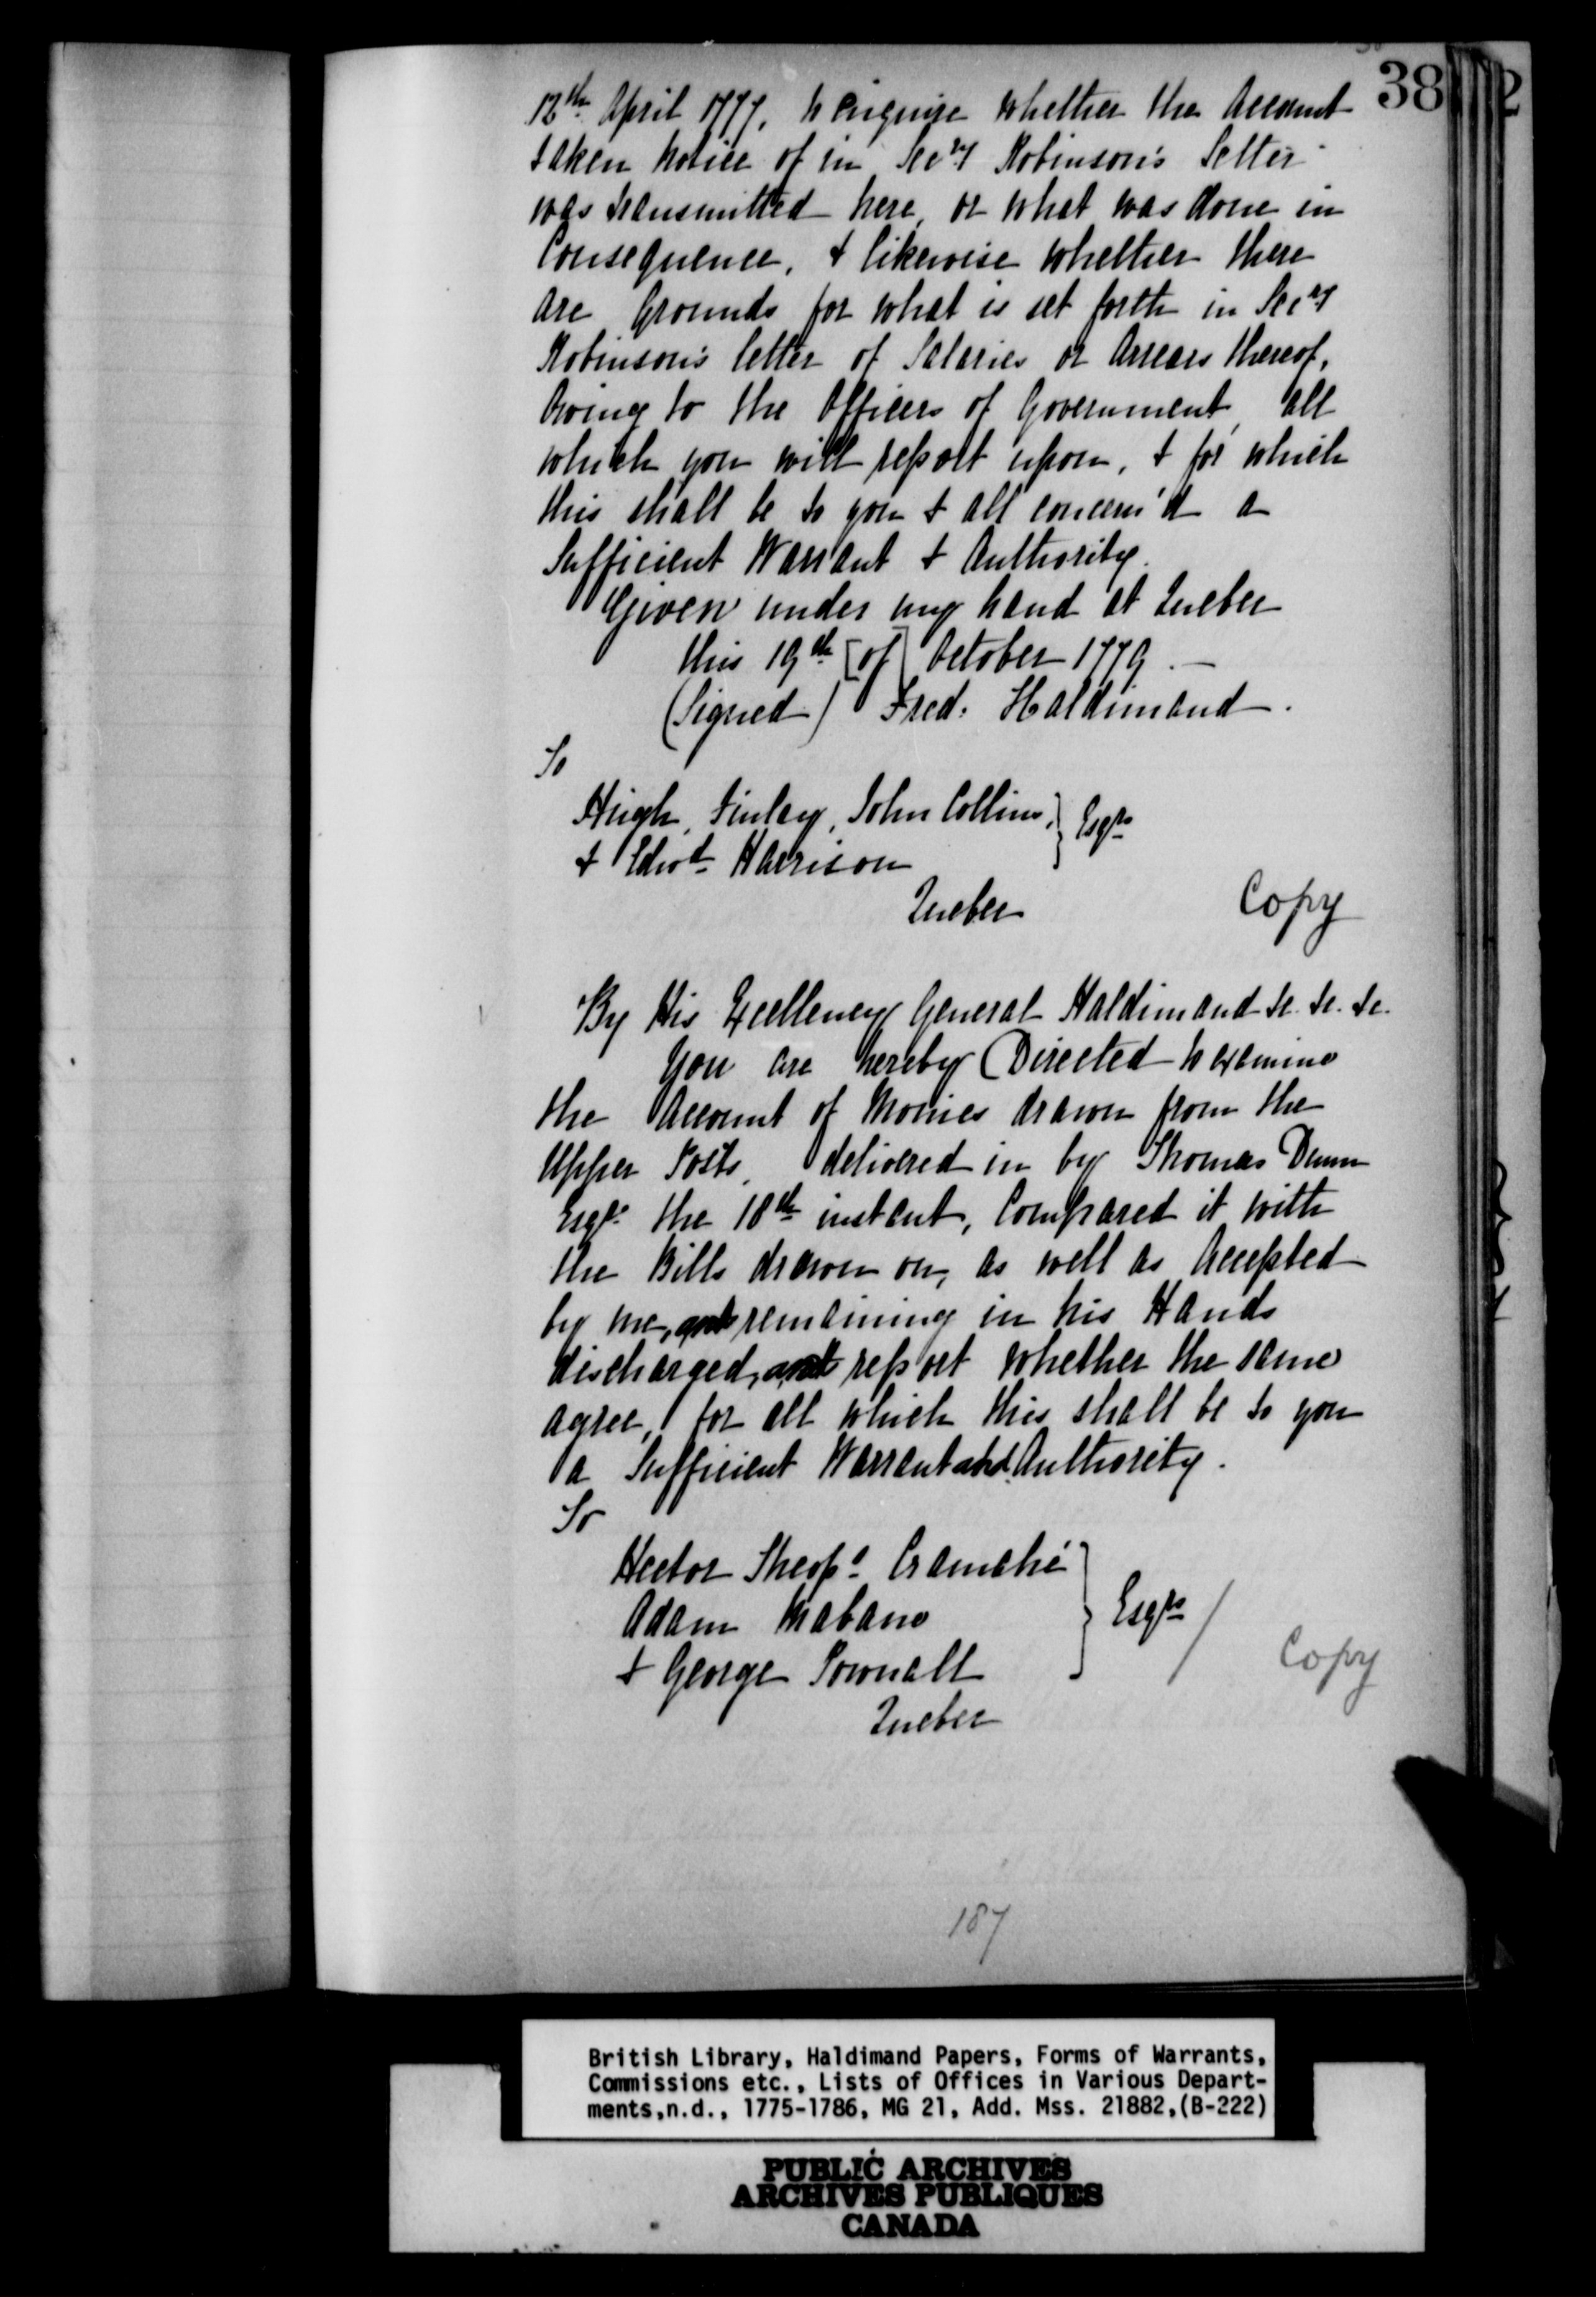 38
12th April 1777, to enquire whether the Account
taken notice of in Secry Robinson's Letter
was transmitted here, or what was done in
Consequence, & likewise whether there
are Grounds for what is set forth in Secry
Robinson's letter of Salaries or Arrears thereof,
Owing to the Officers of Government, all
which you will report upon, & for which
this shall be to you & all concern'd a
Sufficient Warrant & Authority.
Given under my hand at Quebec
this 19th [of] October 1779. —
(Signed) Fred: Haldimand.
To
Hugh, Finlay, John Collins,
& Edwd Harrison } Esqrs
Quebec
Copy
By His Excellency General Haldimand &c. &c. &c.
You are hereby Directed to examine
the Account of Monies drawn from the
Upper Posts, delivered in by Thomas Dunn
Esqr. the 18th instant, Compared it with
the Bills drawn on, as well as Accepted
by me, and remaining in his Hands
discharged, and report whether the same
agree, for all which this shall be to you
a Sufficient Warrant and Authority.
To
Hector Theops Cramahé
Adam Mabane } Esqrs /
& George Pownall
Copy
Quebec
187
British Library, Haldimand Papers, Forms of Warrants,
Commissions etc., Lists of Offices in Various Depart-
ments,n.d., 1775-1786, MG 21, Add. Mss. 21882,(B-222)
PUBLIC ARCHIVES
ARCHIVES PUBLIQUES
CANADA